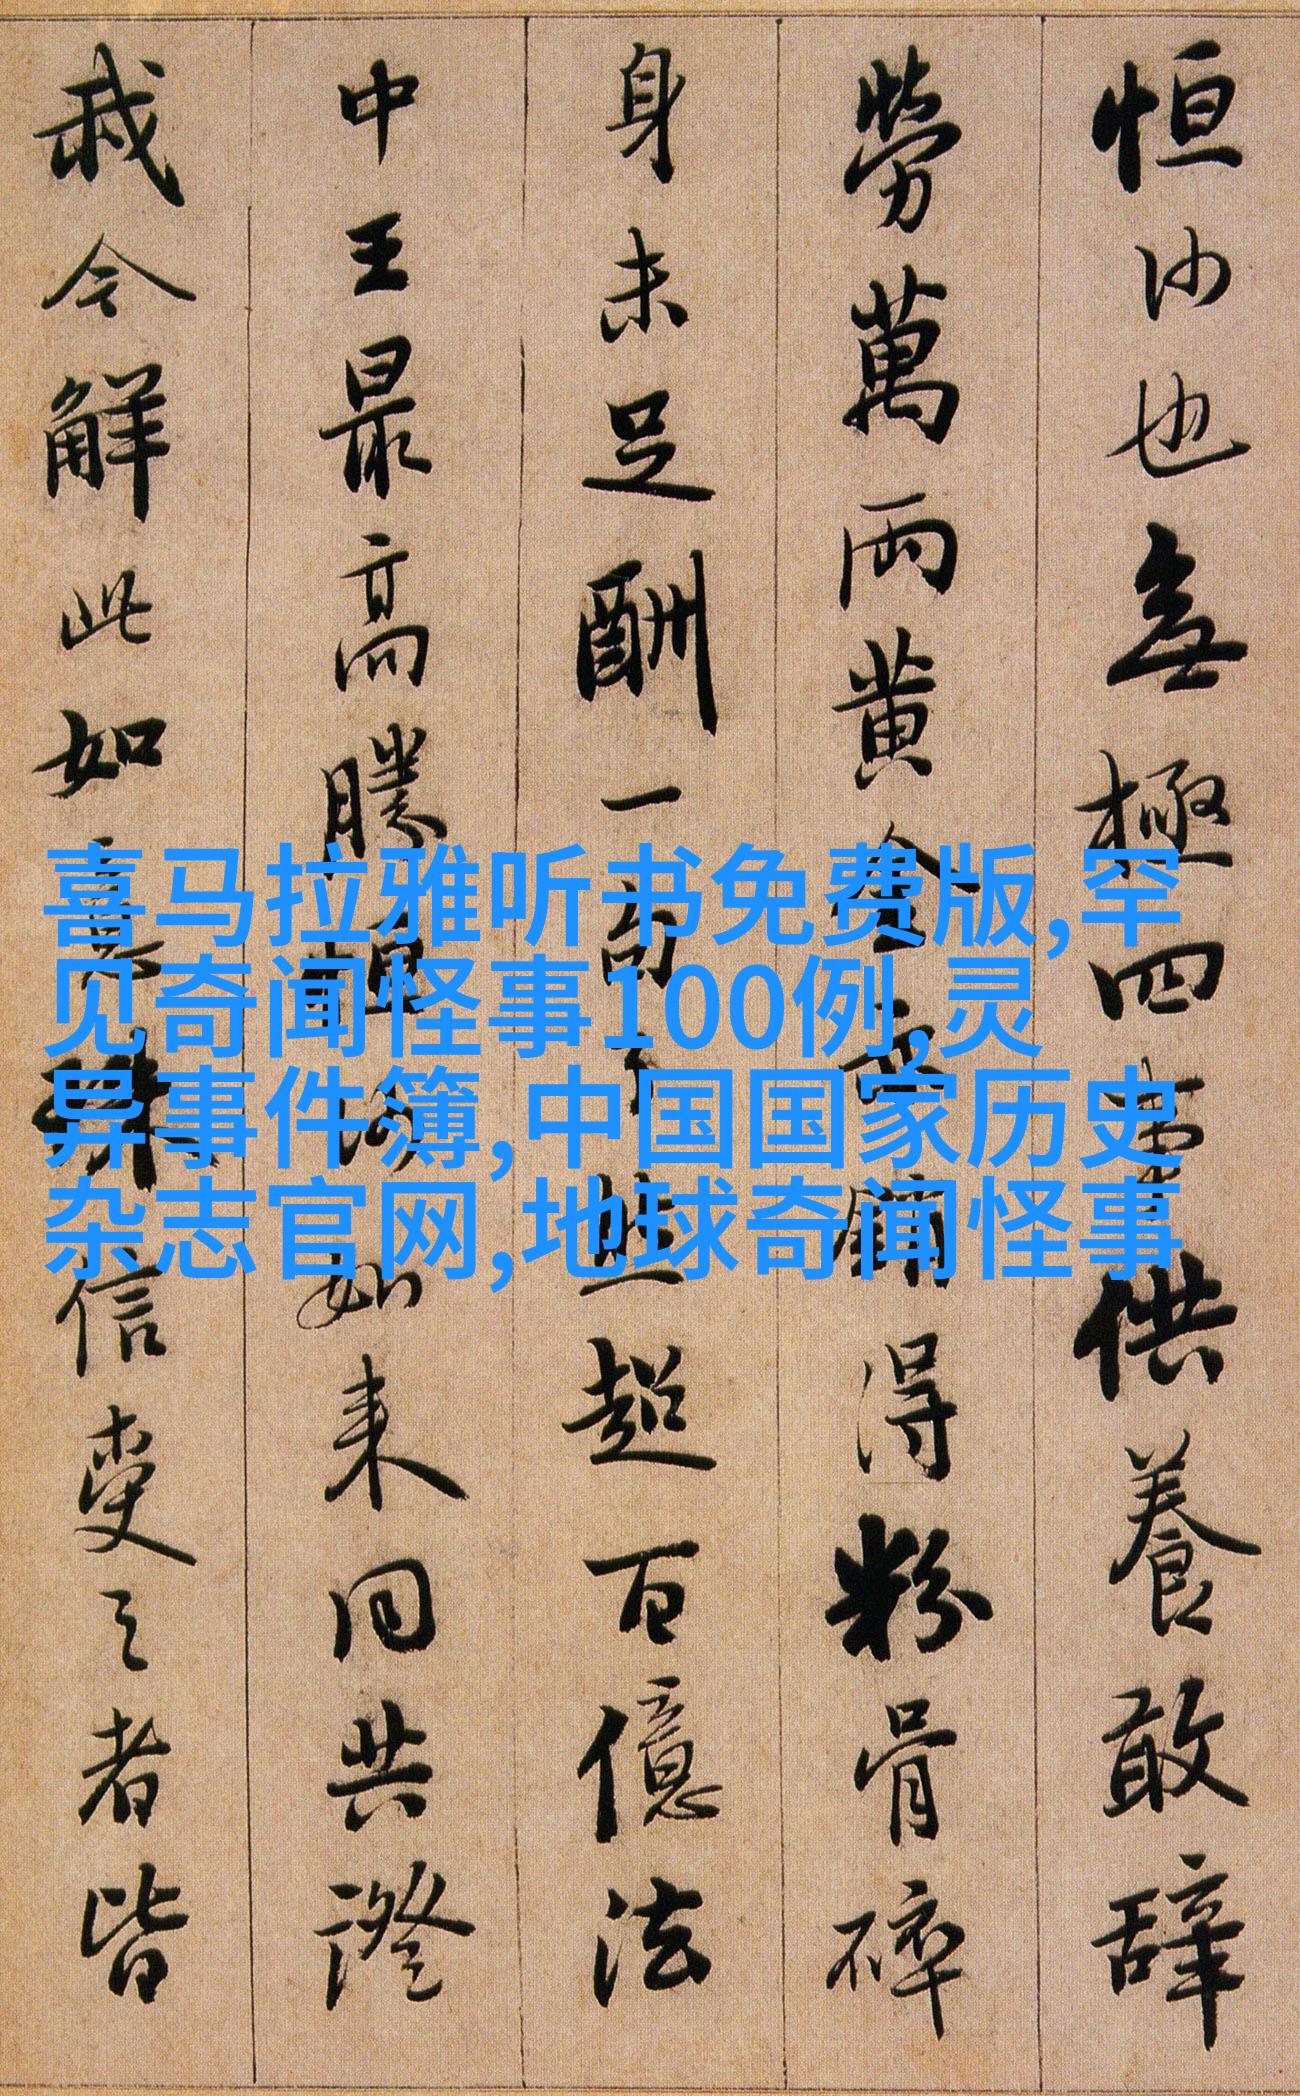 恒沙也無極四事供養敢辞
勞萬兩黄金亦銷得粉骨碎
身未足酬一句了然超百億法
中王最高勝恒沙如来同共證
我今解此如意珠信受之者皆
喜马拉雅听书免费版,罕
见奇闻怪事100例,灵
异事件簿,中国国家历史
杂志官网,地球奇闻怪事